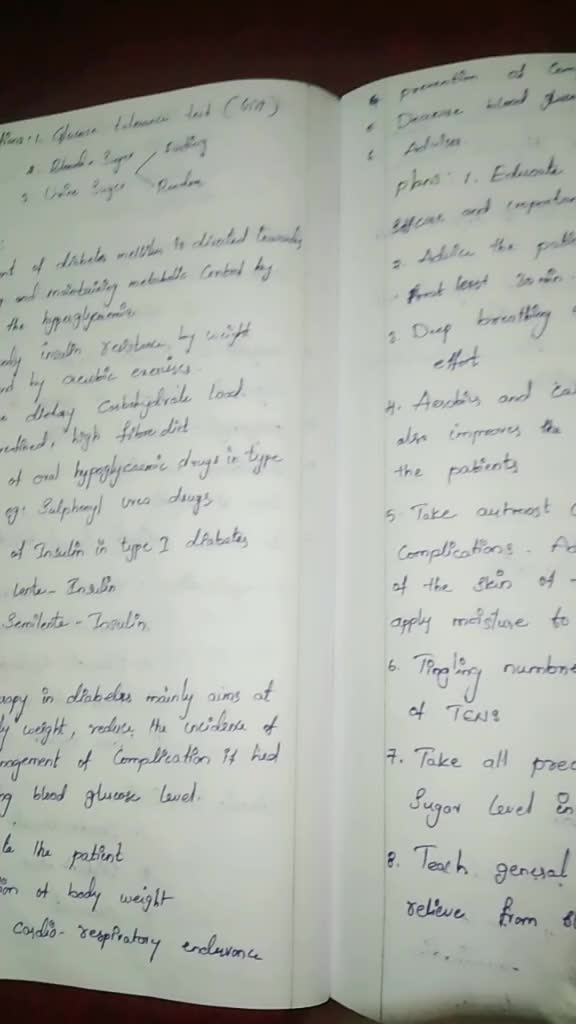 tions: 1. Glucose tolerance test (GTT)
2. Blood Sugar Fasting
3. Urine Sugar Random
nt of diabetes mellitus is directed towards
and maintaining metabolic Control by
the hyperglycemia
insulin resistance by weight
and by aerobic exercises
dietary Carbohydrate load
high fibre diet
of oral hypoglycaemic drugs in type
eg: Sulphonyl urea drugs
of Insulin in type I diabetes
Lente - Insulin
Semilente - Insulin
rapy in diabetes mainly aims at
dy weight, reduce the incidence of
nagement of Complication if hed
ng blood glucose level.
te the patient
ion of body weight
Cardio-respiratory endurance
prevention of Com
Decrease blood gluco
Advise
plan: 1. Educate
and importan
2. Advice the patie
least 30 min
3. Deep breathing
effort
4. Aerobics and
also improves the
the patients
5. Take autmost
Complications.
of the skin of
apply moisture to
6. Tingling numbne
of TENS
7. Take all prec
Sugar level in
8. Teach general
relieve from